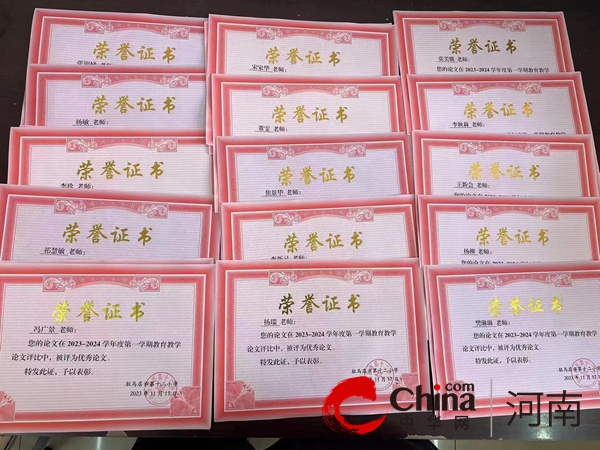 荣誉证书
老师：
荣誉证书
宋家华 老师：
荣誉证书
老师：
您的论文在2023-2024学年度第一学期教育教学
荣誉证书
杨敏 老师：
荣誉证书
董雯 老师：
荣誉证书
李秋莉 老师：
荣誉证书
老师：
荣誉证书
焦景华 老师：
荣誉证书
王新会 老师：
荣誉证书
祁慧敏 老师：
荣誉证书
老师：
荣誉证书
杨柳 老师：
荣誉证书
冯广景 老师：
您的论文在2023-2024学年度第一学期教育教学
论文评比中，被评为优秀论文。
特发此证，予以表彰。
驻马店市第十二小学
2023年11月17日
荣誉证书
杨瑞 老师：
您的论文在2023-2024学年度第一学期教育教学
论文评比中，被评为优秀论文。
特发此证，予以表彰。
荣誉证书
樊琳琳 老师：
您的论文在2023-2024学年度第一学期教育教学
论文评比中，被评为优秀论文。
特发此证，予以表彰。
驻马店市第十二小学
China.com
中华网
河南